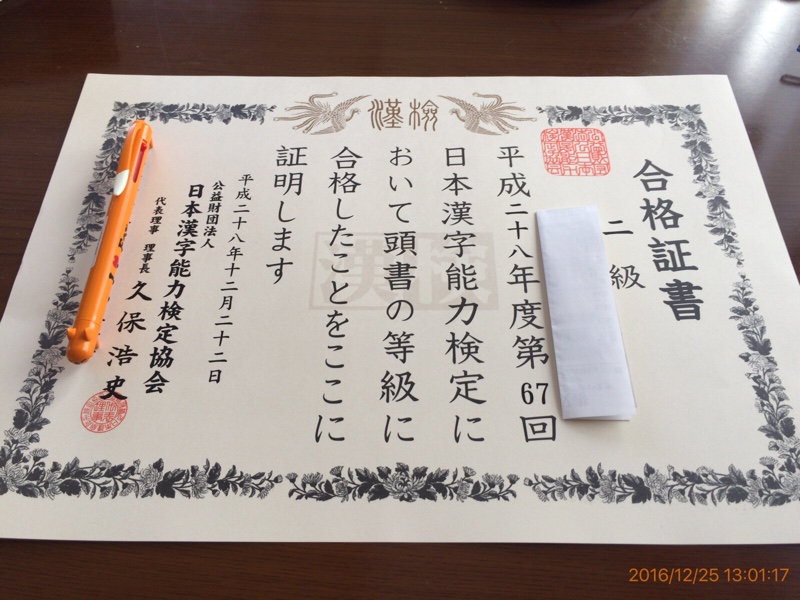 漢検
合格証書
二級
平成二十八年度第67回
日本漢字能力検定に
おいて頭書の等級に
合格したことをここに
証明します
平成二十八年十二月二十二日
公益財団法人
日本漢字能力検定協会
代表理事 理事長 久保浩史
漢検
2016/12/25 13:01:17